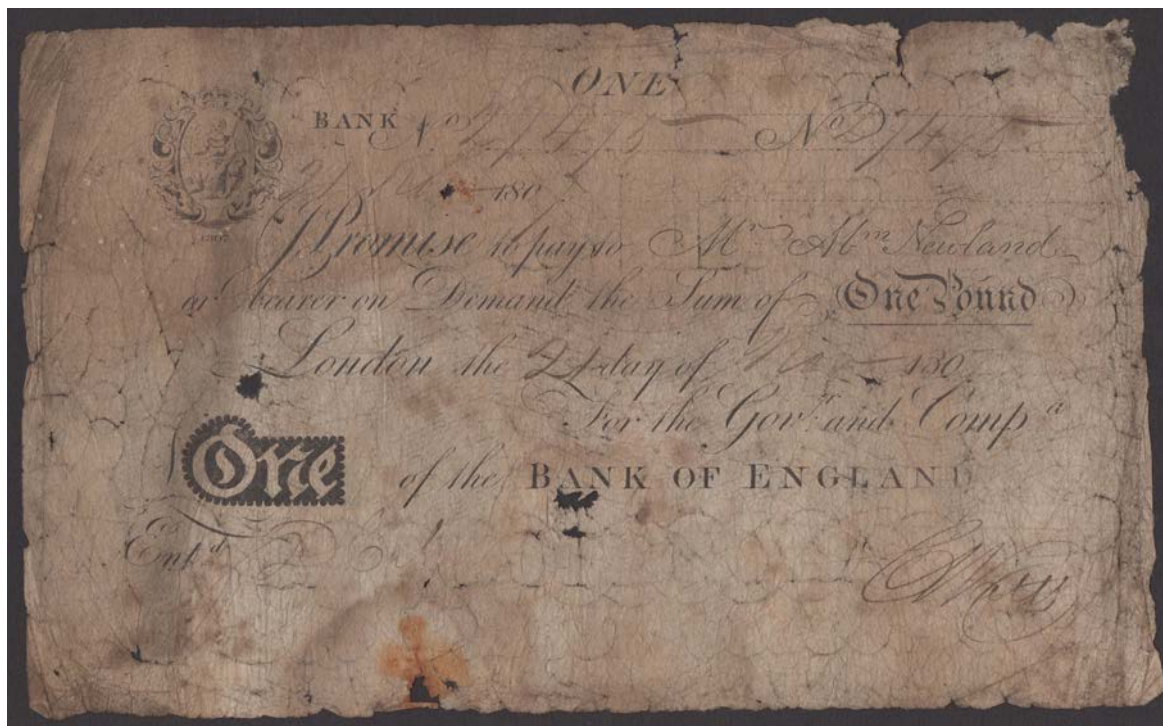 ONE
BANK No 27475 No 27475
180
1807
I Promise to pay to Mr. Abm Newland
or bearer on Demand the Sum of One Pound
London the day of 180
For the Govr. and Compa
of the BANK OF ENGLAND
One
Entd